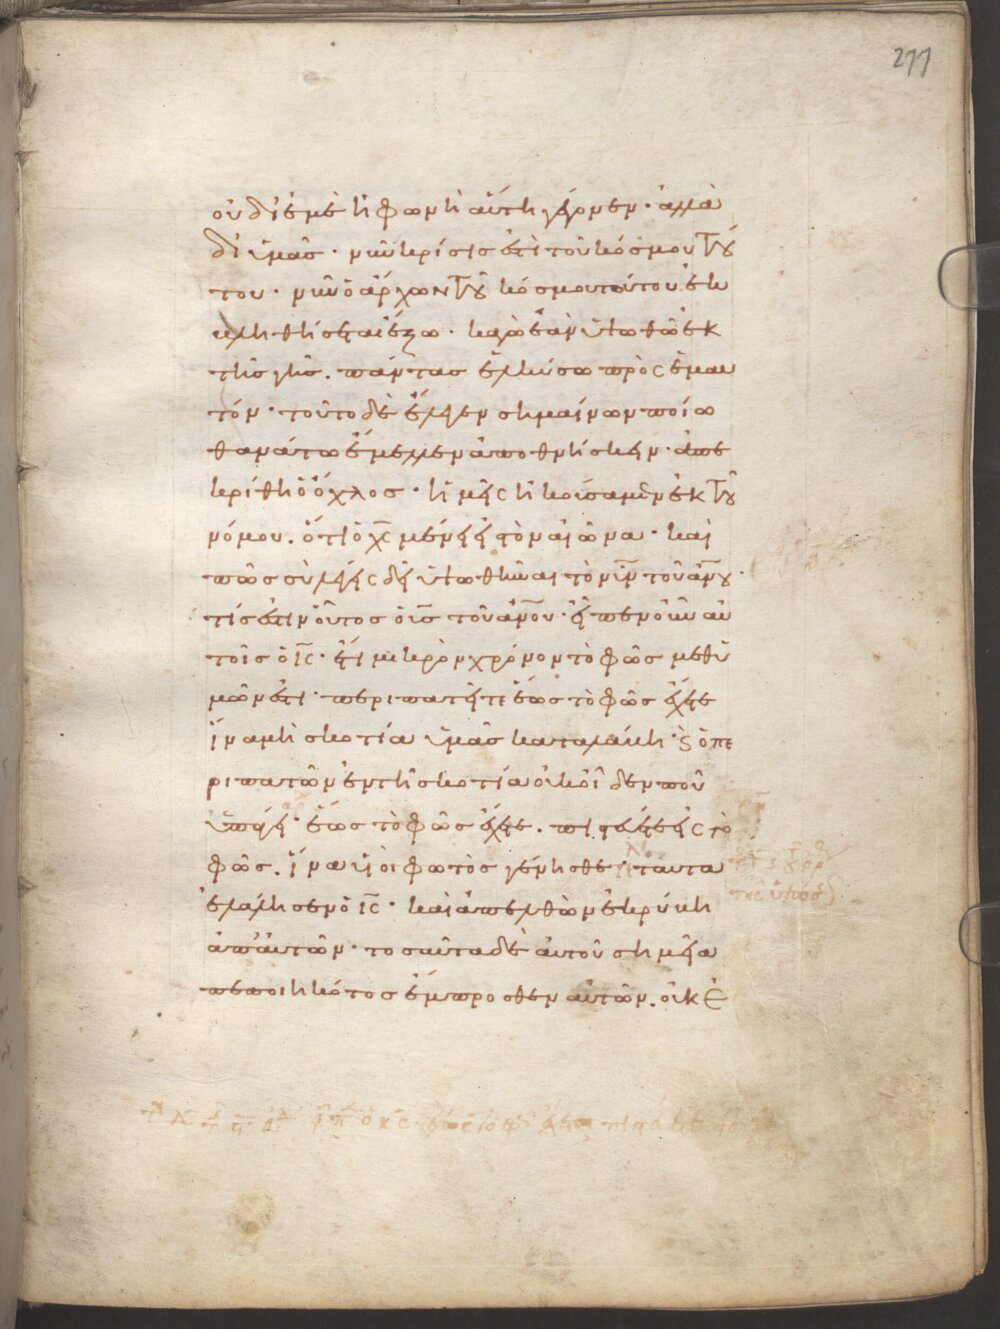 277
οὐ δι' ἐμὲ ἡ φωνὴ αὕτη γέγονεν· ἀλλὰ
δι' ὑμᾶς· νῦν κρίσις ἐστὶ τοῦ κόσμου τού
του· νῦν ὁ ἄρχων τοῦ κόσμου τούτου ἐκ
βληθήσεται ἔξω· κἀγὼ ἐὰν ὑψωθῶ ἐκ
τῆς γῆς. πάντας ἑλκύσω πρὸς ἐμαυ
τόν· τοῦτο δὲ ἔλεγεν σημαίνων ποίω
θανάτω ἔμελλεν ἀποθνήσκειν· ἀπε
κρίθη ὁ ὄχλος· ἡμεῖς ἠκούσαμεν ἐκ τοῦ
νόμου. ὅτι ὁ χς μένει εἰς τὸν αἰῶνα· καὶ
πῶς σὺ λέγεις δεῖ ὑψωθῆναι τὸν υἱν τοῦ ανου·
τίς ἐστιν οὗτος ὁ υἱς τοῦ ανου· εἶπεν οὖν αὐ
τοῖς ὁ ις· ἔτι μικρὸν χρόνον τὸ φῶς μεθ' ὑ
μῶν ἐστι· περιπατεῖτε ἕως τὸ φῶς ἔχετε
ἵνα μὴ σκοτία ὑμᾶς καταλάβη· καὶ ὁ πε
ριπατῶν ἐν τῆ σκοτία οὐκ οἶδεν ποῦ
ὑπάγει· ἕως τὸ φῶς ἔχετε. πιστεύετε εἰς τὸ
φῶς. ἵνα υἱοὶ φωτὸς γένησθε· ταῦτα
ἐλάλησεν ὁ ις· καὶ ἀπελθὼν ἐκρύβη
ἀπ' αὐτῶν· τοσαῦτα δὲ αὐτοῦ σημεῖα
πεποιηκότος ἔμπροσθεν αὐτῶν. οὐκ ἐ